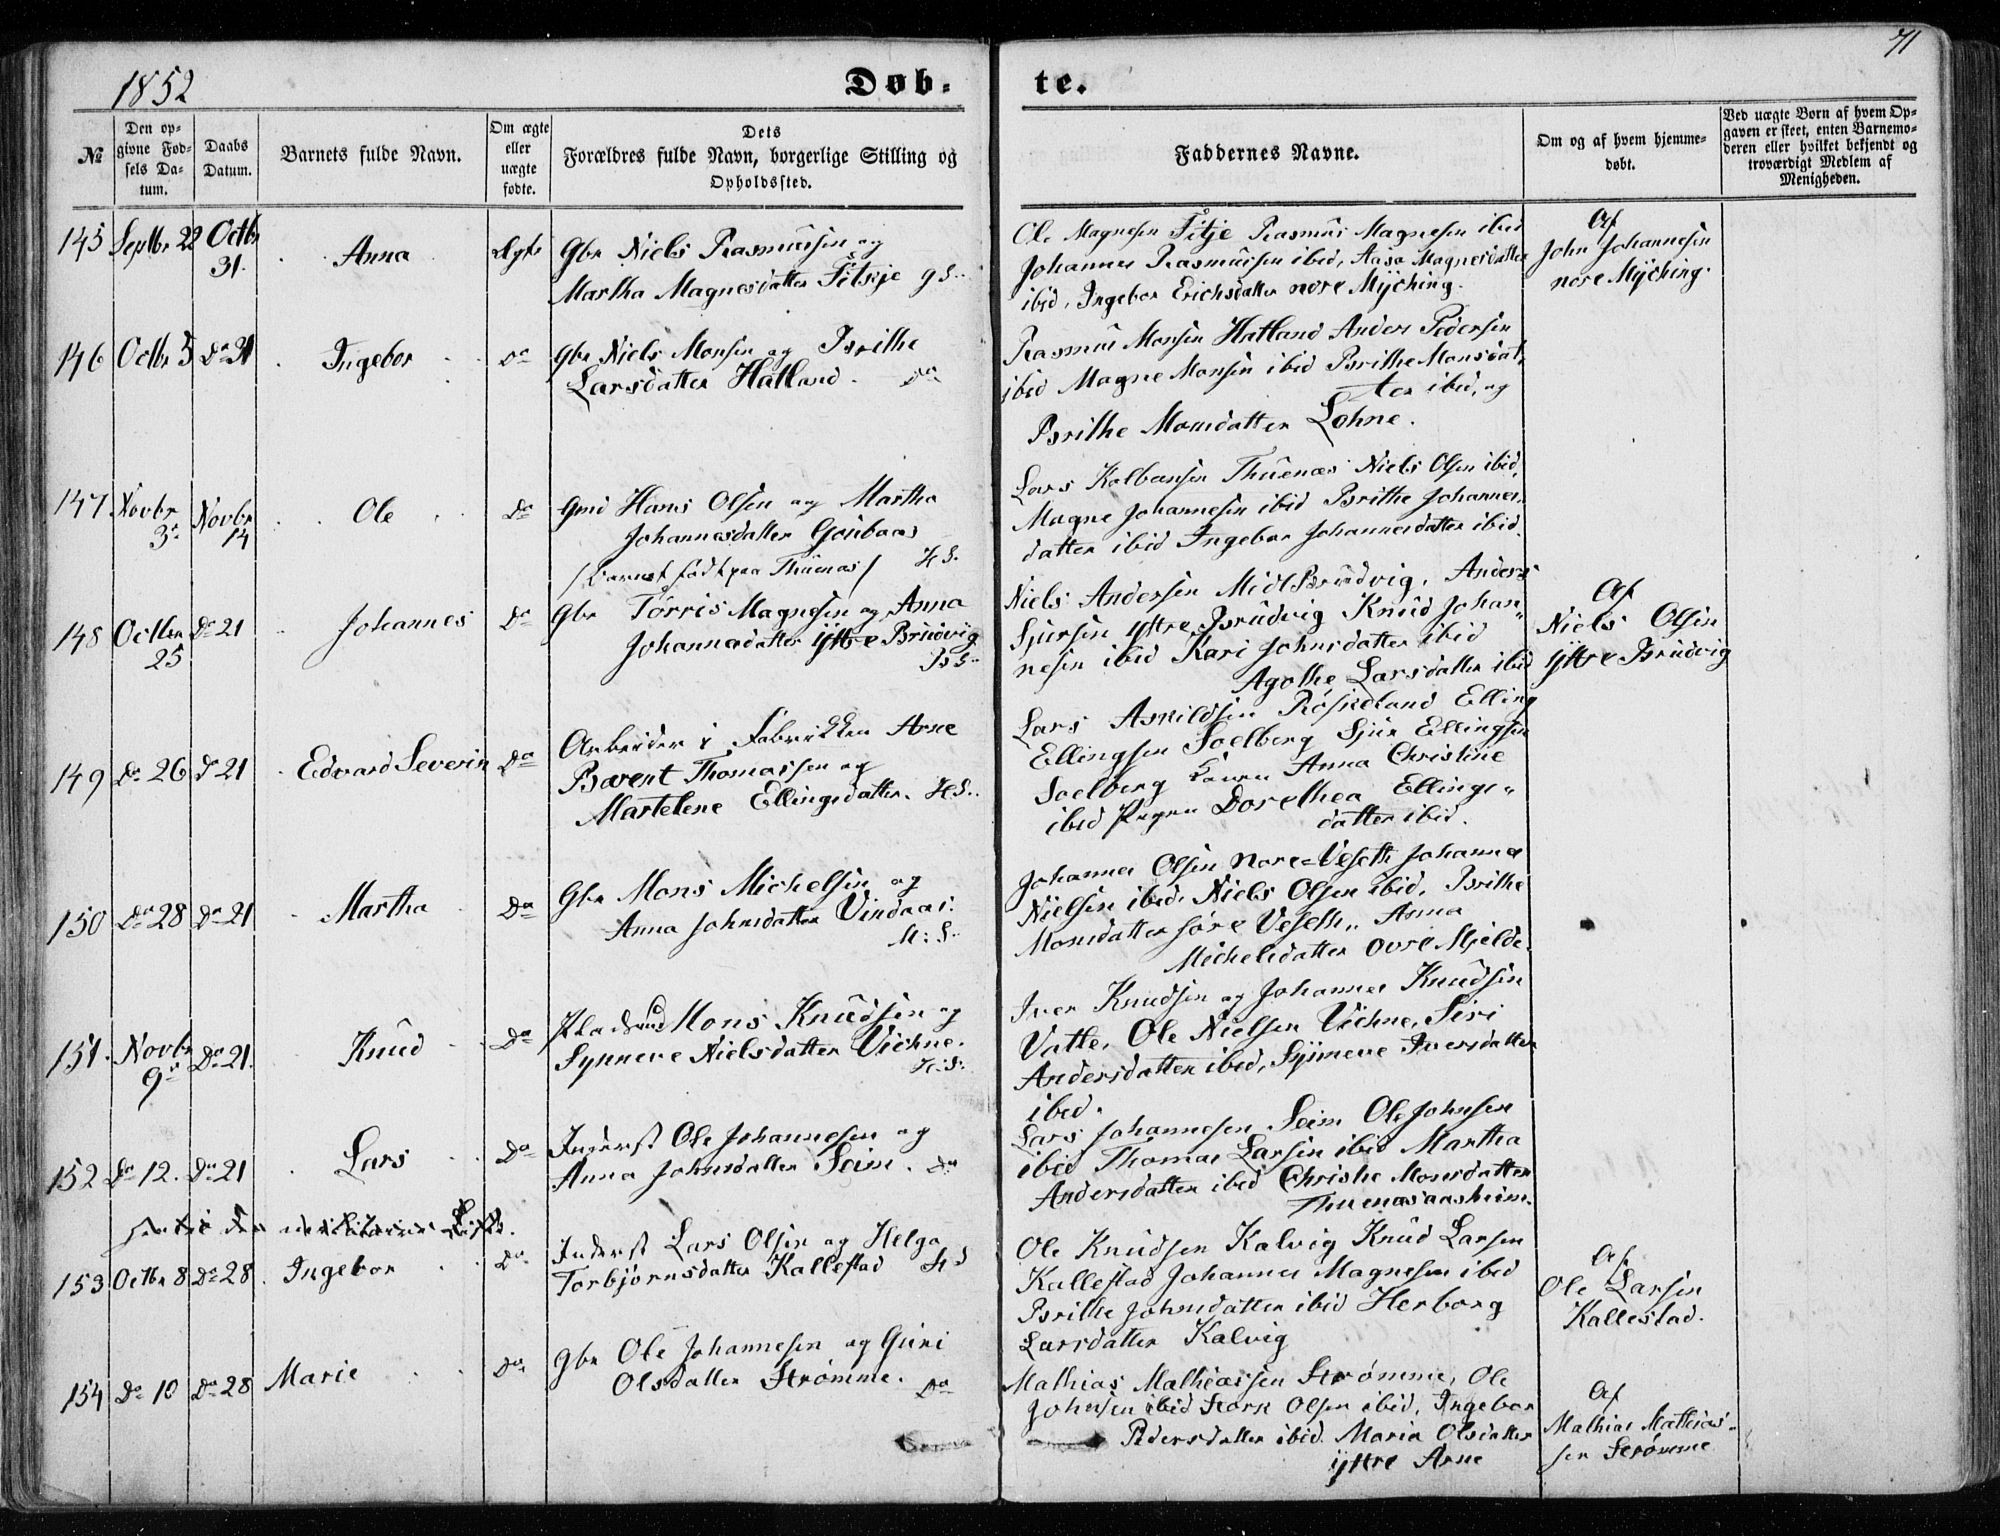 71
1852
Døb-
te.
№
Den op-
givne Fød-
sels Da-
tum.
Daabs
Datum.
Barnets fulde Navn.
Om ægte
eller
uægte
fødte.
Dets
Forældres fulde Navn, borgerlige Stilling og
Opholdssted.
Faddernes Navne.
Om og af hvem hjemme-
døbt.
Ved uægte Børn af hvem Op-
gaven er skeet, enten Barnemo-
deren eller hvilket bekjendt og
troværdigt Medlem af
Menigheden.
145 Septbr 22 Octbr
31.
Anna
Ægte
Gbr Niels Rasmussen og
Martha Magnesdatter Fitje GS.
Ole Magnesen Fitje Rasmus Magnesen ibid
Johannes Rasmussen ibid, Aasa Magnesdatter
ibid, Ingebor Erichsdatter nore Myching.
Af
John Johannesen
nore Myching.
146 Octbr 5 Do 31
Ingebor
Do
Gbr Niels Monsen og Brithe
Larsdatter Hatland. Do
Rasmus Monsen Hatland Anders Pedersen
ibid Magne Monsen ibid Brithe Monsdat,
ter ibid, og
Brithe Monsdatter Lohne.
147 Novbr
3. Novbr
14
Ole
Do
Gmd Hans Olsen og Martha
Johannesdatter
/Barnet født paa Thunæs/ HS.
Lars Kolbensen Thuenæs Niels Olsen ibid,
Magne Johannesen ibid Brithe Johannes,
datter ibid Ingebor Johannesdatter ibid.
148 Octbr
25 Do 21
Johannes
Do
Gbr Tørris Magnesen og Anna
Johannesdatter Yttre Brudvig
BS.
Niels Andersen Midt Brudvig, Anders
Sjursen Yttre Brudvig Knud Johan-
nesen ibid Kari Johnsdatter ibid
Agothe Larsdatter ibid
Af
Niels Olsen
Yttre Brudvig
149 Do 26 Do 21
Edvard Severin
Do
Arbeider i Fabrikken Arne
Barent Thomassen og
Martelene Ellingsdatter. HS.
Lars Askildsen Røskeland Elling
Ellingsen Soelberg Sjur Ellingsen
Soelberg Anna Christine
ibid Pigen Dorethea Ellings-
datter ibid.
150 Do 28 Do 21
Martha
Do
Gbr Mons Michelsen og
Anna Johnsdatter Vindaas.
M:S.
Johannes Olsen nore-Veseth Johannes
Nielsen ibid, Niels Olsen ibid, Brithe
Monsdatter søre Veseth, Anna
Michelsdatter øvre Mjelde.
151. Novbr
9. Do 21.
Knud
Do
Pladsmd Mons Knudsen og
Synneve Nielsdatter Vichne.
H:S.
Iver Knudsen og Johannes Knudsen
Vatle, Ole Nielsen Vichne, Siri
Andersdatter ibid, Synneve Iversdatter
ibid.
152 Do 12. Do 21
Lars
Do
Inderst Ole Johannesen og
Anna Johnsdatter Seim. Do
Lars Johannesen Seim Ole Johnsen
ibid Thomas Larsen ibid Martha
Andersdatter ibid Christie Monsdatter
Thuenæsaasheim.
153 Octbr 8 Do 28
Ingebor
Do
Inderst Lars Olsen og Helga
Torbjørnsdatter Kallestad HS
Ole Knudsen Kalvig Knud Larsen
Kallestad Johannes Magnesen ibid
Brithe Johnsdatter ibid Herborg
Larsdatter Kalvig
Af
Ole Larsen
Kallestad.
154 Do 10 Do 28
Marie
Do
Gbr Ole Johannesen og Guri
Olsdatter Strømme. Do
Mathias Mathiassen Strømme, Ole
Johnsen ibid Olsen ibid, Ingebor
Pedersdatter ibid. Maria Olsdatter
Yttre Arne
Af
Mathias Mathias-
sen Strømme